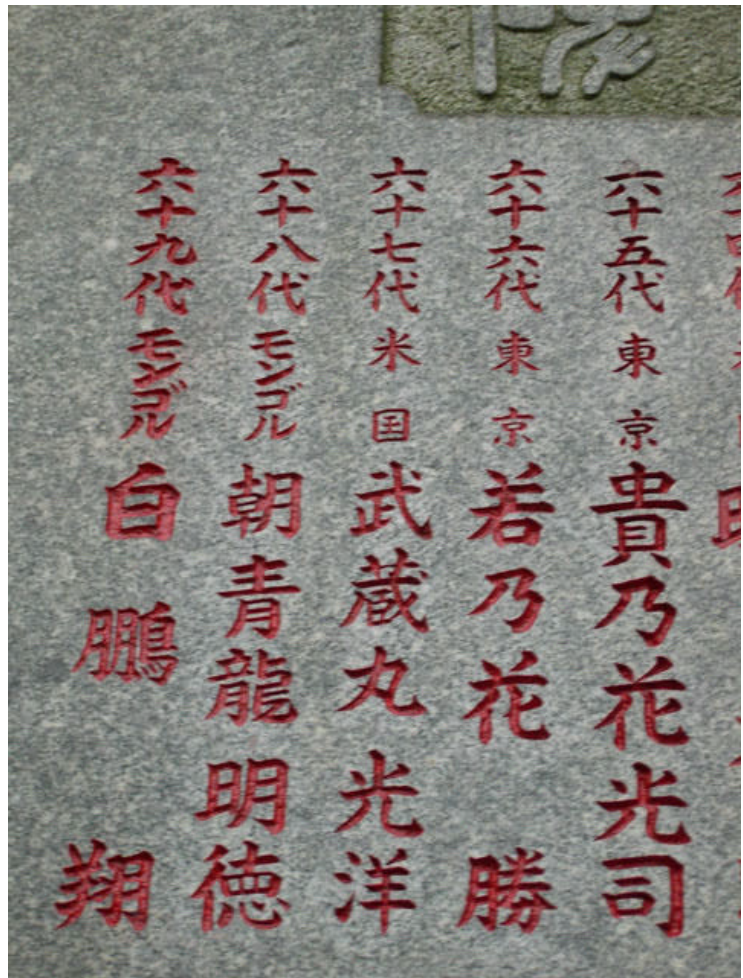 六十五代 東京 貴乃花光司
六十六代 東京 若乃花 勝
六十七代 米国 武蔵丸光洋
六十八代 モンゴル 朝青龍明徳
六十九代 モンゴル 白鵬 翔